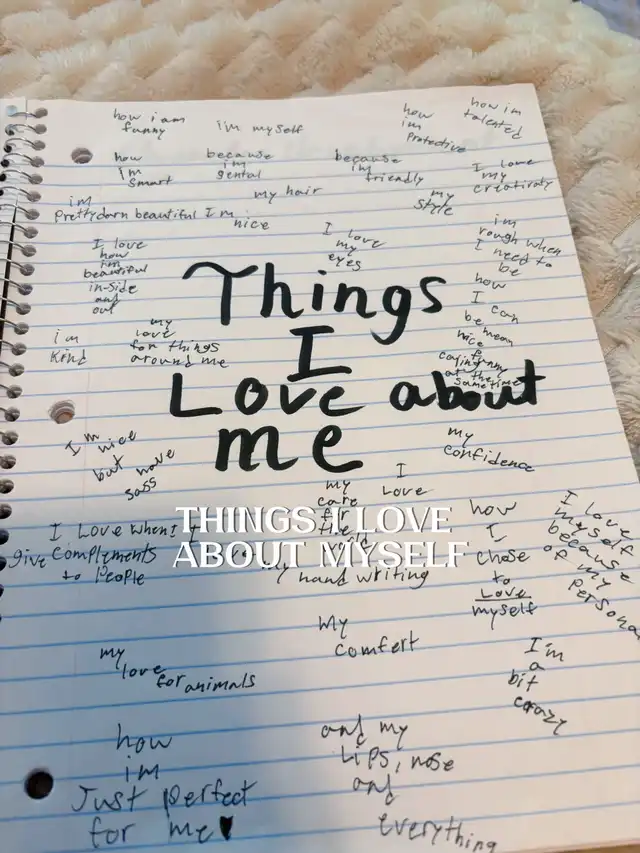 how i am
funny
i'm myself
how
im
protective
how im
talented
how
I'm
smart
because
i'm
gental
because
i'm
friendly
I love
my
creativaty
my hair
my
style
im
prettydarn beautiful
I'm
nice
I love
my
eyes
im
rough when
I need to
be
I love
how
im
beautiful
in-side
and
out
how
I can
be mean
nice
caring
funny
at the
sametime
Things
I
Love about
me
im
kind
my
love
for things
around me
I'm nice
but have
sass
my
confidence
my
care
for
the
I
Love
how
I
chose
to
Love
myself
I love
myself
because
of my
persona
THINGS I LOVE
ABOUT MYSELF
I Love when I
give complements
to People
hand writing
My
comfert
I'm
a
bit
crazy
my
love
for animals
how
im
Just perfect
for me
and my
Lips, nose
and
everything